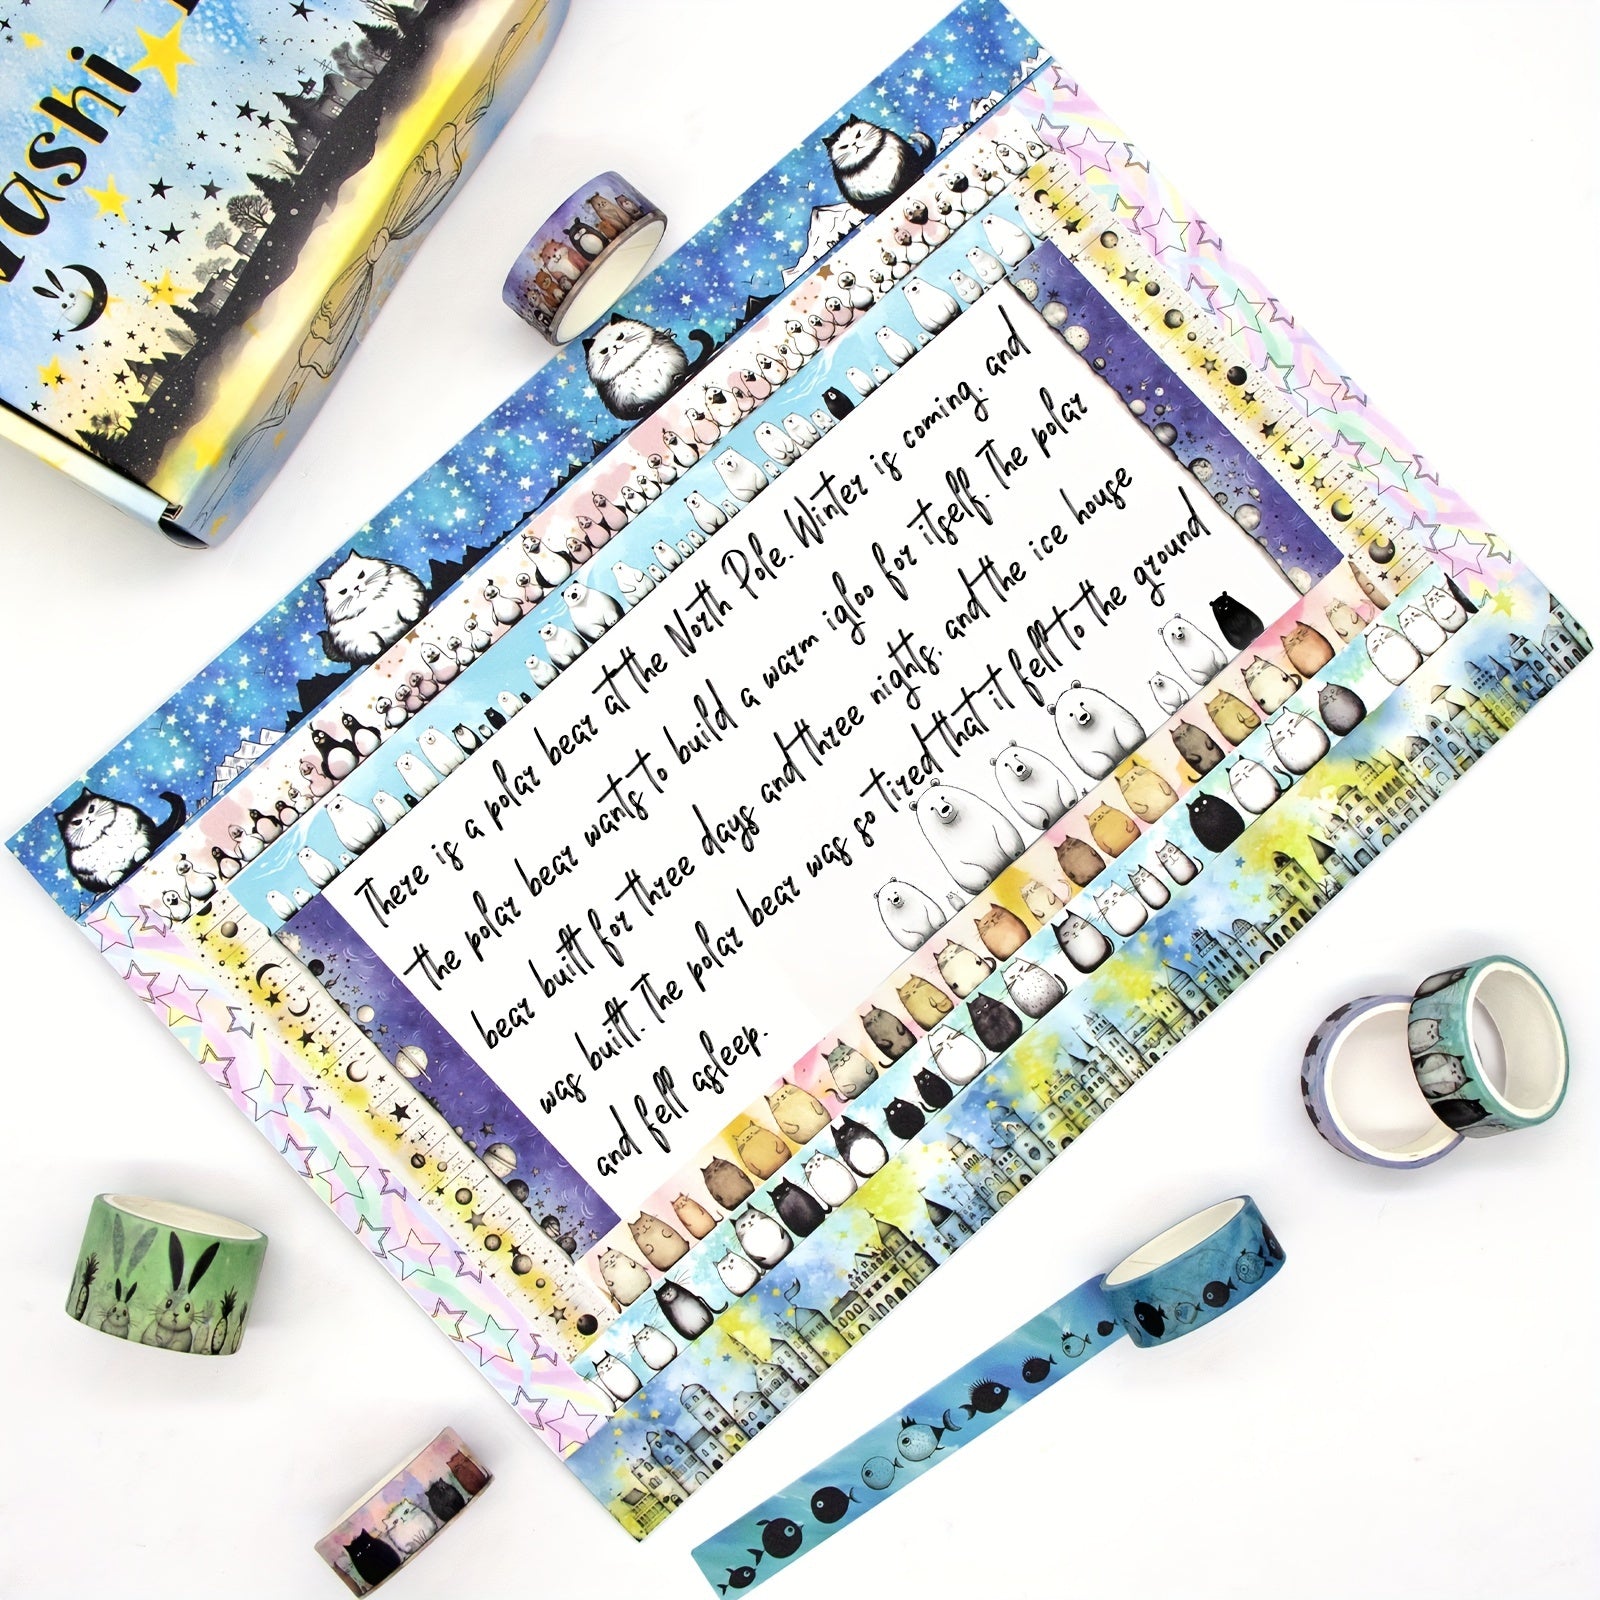 Washi
There is a polar bear at the North Pole. Winter is coming, and
the polar bear wants to build a warm igloo for itself. The polar
bear built for three days and three nights, and the ice house
was built. The polar bear was so tired that it fell to the ground
and fell asleep.